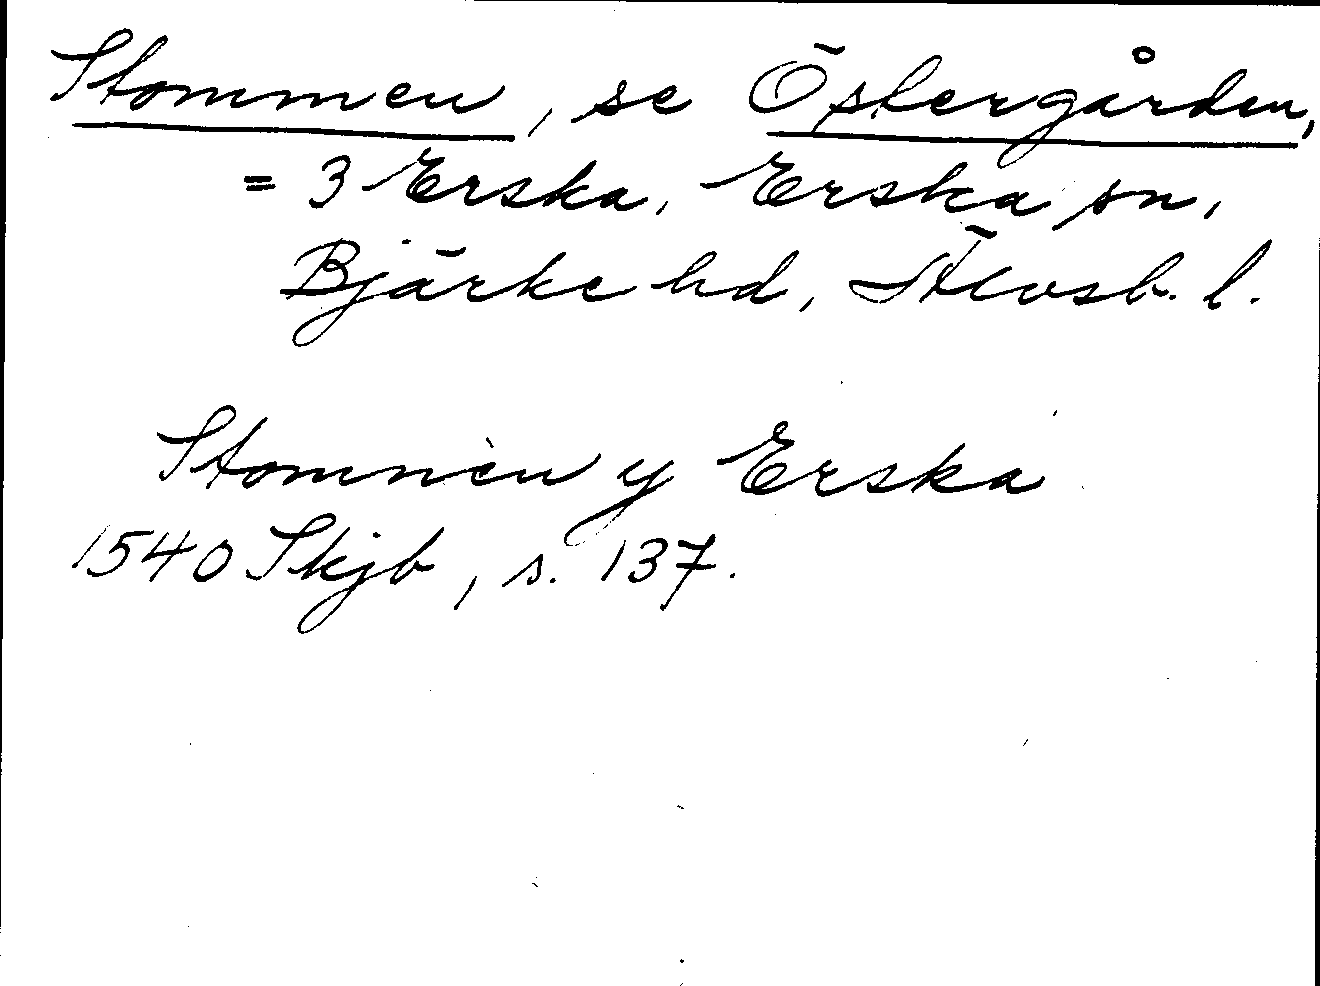 Stommen, se Östergården,
= 3 Erska, Erska sn,
Bjärke hd, Älvsb. l.
Stomnen y Erska
1540 Skjb, s. 137.